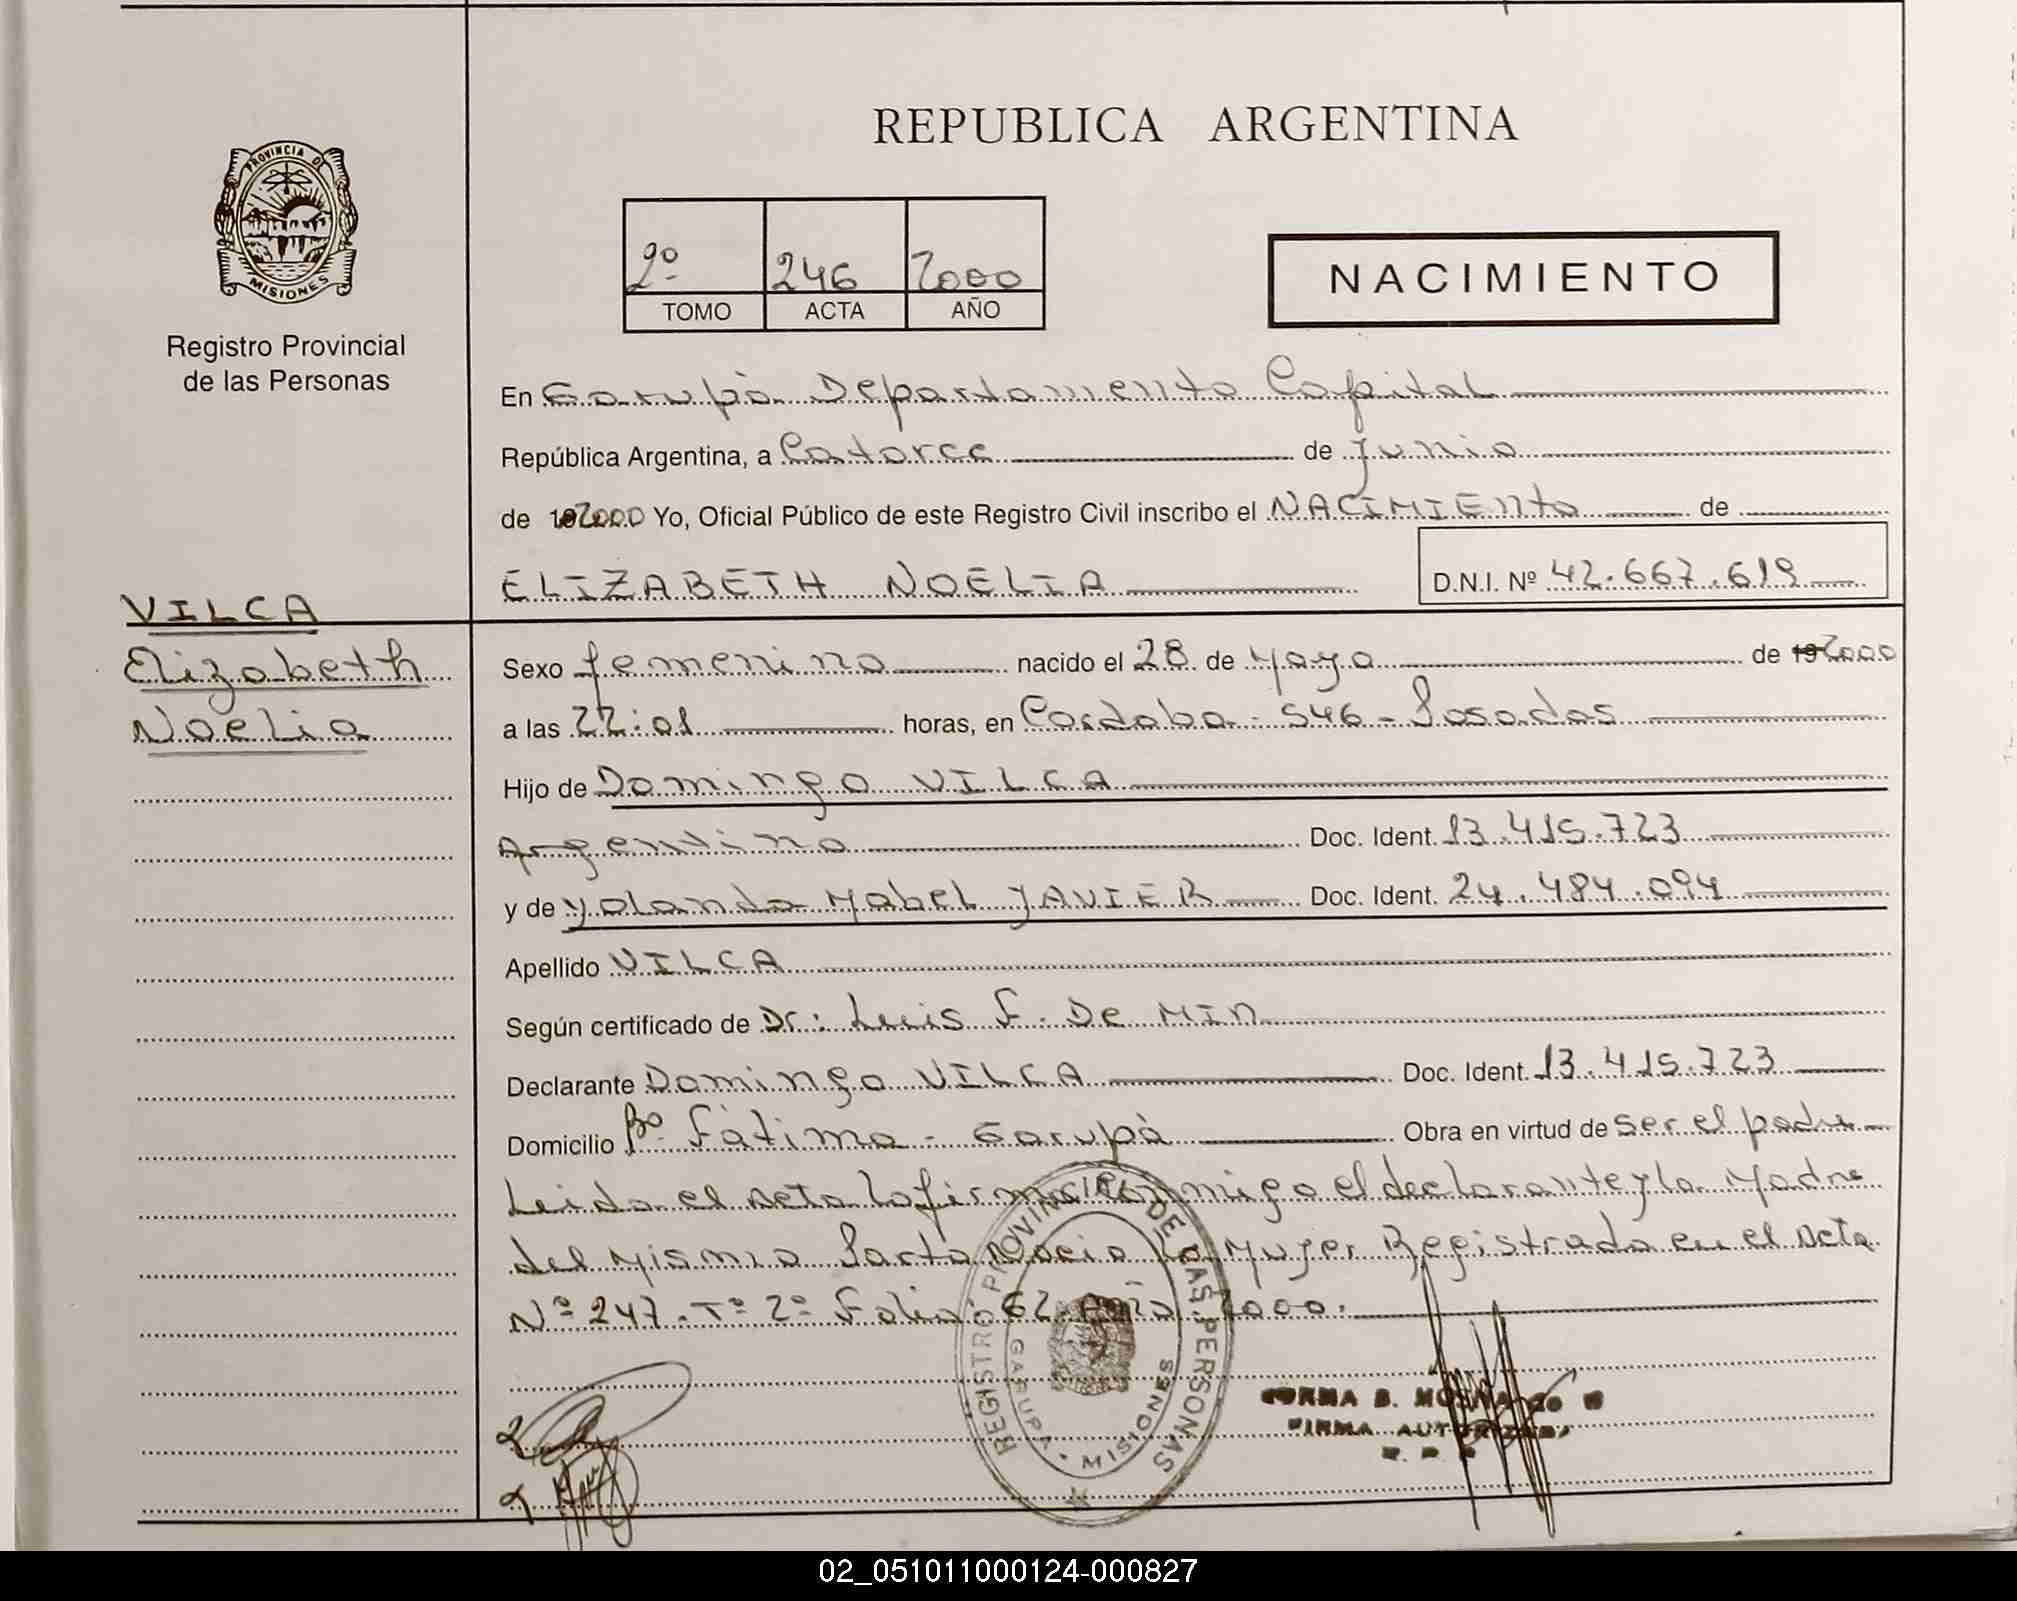 REPUBLICA ARGENTINA
PROVINCIA DE
MISIONES
Registro Provincial
de las Personas
2º 246 2000
TOMO ACTA AÑO
NACIMIENTO
En Garupà Departamento Capital
República Argentina, a Catorce de Junio
de 192000 Yo, Oficial Público de este Registro Civil inscribo el NACIMIENto de
ELIZABETH NOELIA D.N.I. Nº 42.667.619
VILCA
Elizabeth
Noelia
Sexo femenino nacido el 28 de Mayo de 192000
a las 22:01 horas, en Cordoba - 546 - Posadas
Hijo de Domingo VILCA
Argentino Doc. Ident. 13.415.723
y de Yolanda Mabel JAVIER Doc. Ident. 24.484.094
Apellido VILCA
Según certificado de Dr: Luis F. De MIN
Declarante Domingo VILCA Doc. Ident. 13.415.723
Domicilio Bº Fàtima - Garupà Obra en virtud de ser el padre
Leida el Acta la firma conmigo el declarante y la Madre
del Mismo Parto Nacio la Mujer Registrada en el Acta
Nº 247. Tº 2º Folio: 62. Año. 2000.
REGISTRO PROVINCIAL DE LAS PERSONAS
GARUPA - MISIONES
NORMA B.
FIRMA AUTORIZADA
02_051011000124-000827